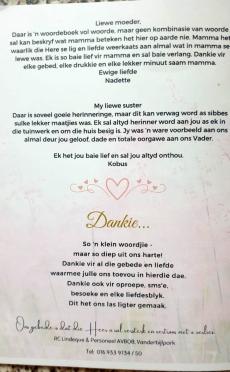 Liewe moeder,
Daar is 'n woordeboek vol woorde, maar geen kombinasie van woorde
sal kan beskryf wat mamma beteken het hier op aarde nie. Mamma het
waarlik die Here se lig en liefde weerkaats aan almal wat in mamma se
lewe was. Ek is so baie lief vir mamma en sal baie verlang. Dankie vir
elke gebed, elke drukkie en elke lekker minuut saam mamma.
Ewige liefde
Nadette
My liewe suster
Daar is soveel goeie herinneringe, maar dit kan verwag word as sibbes
sulke lekker maatjies was. Ek sal altyd herinner word aan jou as ek in
die tuinwerk en om die huis besig is. Jy was 'n ware voorbeeld aan ons
almal deur jou geloof, dade en totale oorgawe aan ons Vader.
Ek het jou baie lief en sal jou altyd onthou.
Kobus
Dankie...
So 'n klein woordjie -
maar so diep uit ons harte!
Dankie vir al die gebede en liefde
waarmee julle ons toevou in hierdie dae.
Dankie ook vir oproepe, sms'e,
besoeke en elke liefdesblyk.
Dit het ons las ligter gemaak.
Ons gebede is dat die Heer u sal versterk en vertroos met u verlies
RC Lindeque & Personeel AVBOB, Vanderbijlpark
Tel: 016 933 9134 / 50